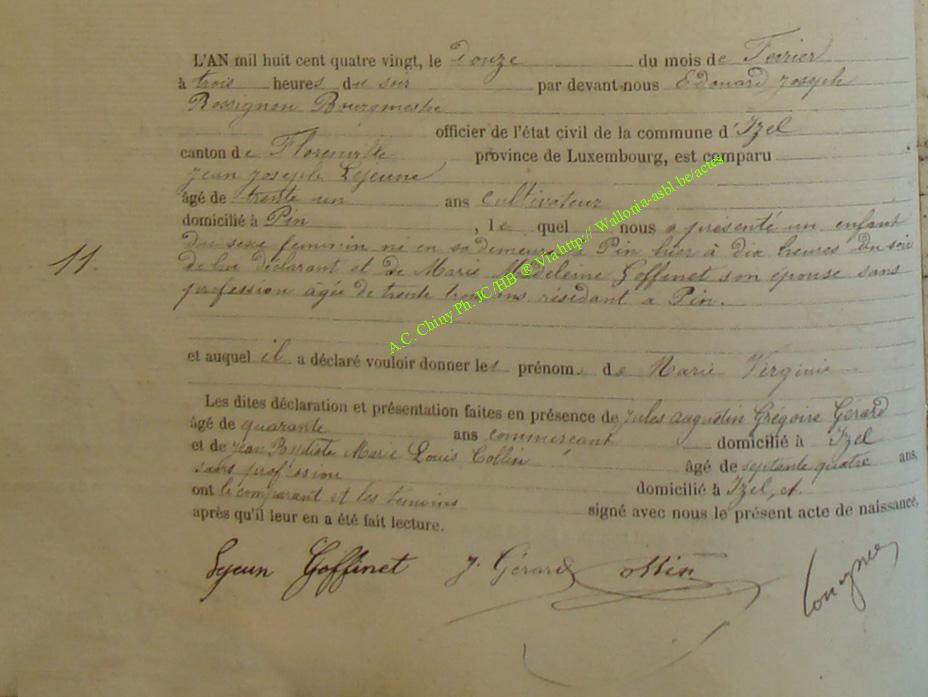 L'AN mil huit cent quatre vingt, le Douze du mois de Fevrier
à trois heures du soir par devant nous Edouard Joseph
Rossignon Bourgmestre
officier de l'état civil de la commune d'Izel
canton de Florenville, province de Luxembourg, est comparu
Jean Joseph Lejeune
âgé de trente un ans cultivateur
domicilié à Pin, le quel nous a présenté un enfant
du sexe feminin né en sa demeure à Pin hier à dix heures du soir
de lui déclarant et de Marie Madeleine Goffinet son épouse sans
profession âgée de trente trois ans résidant a Pin.
11.
et auquel il a déclaré vouloir donner les prénoms de Marie Virginie
Les dites déclaration et présentation faites en présence de Jules Augustin Grégoire Gérard
âgé de quarante ans commerçant domicilié à Izel
et de Jean Baptiste Marie Louis Collin âgé de septante quatre ans,
sans profession domicilié à Izel, et
ont le comparant et les témoins signé avec nous le présent acte de naissance,
après qu'il leur en a été fait lecture.
Lejeun Goffinet J. Gérard Collin
A.C. Chiny Ph. JC/HB ® Via http:// Wallonia-asbl.be/actes